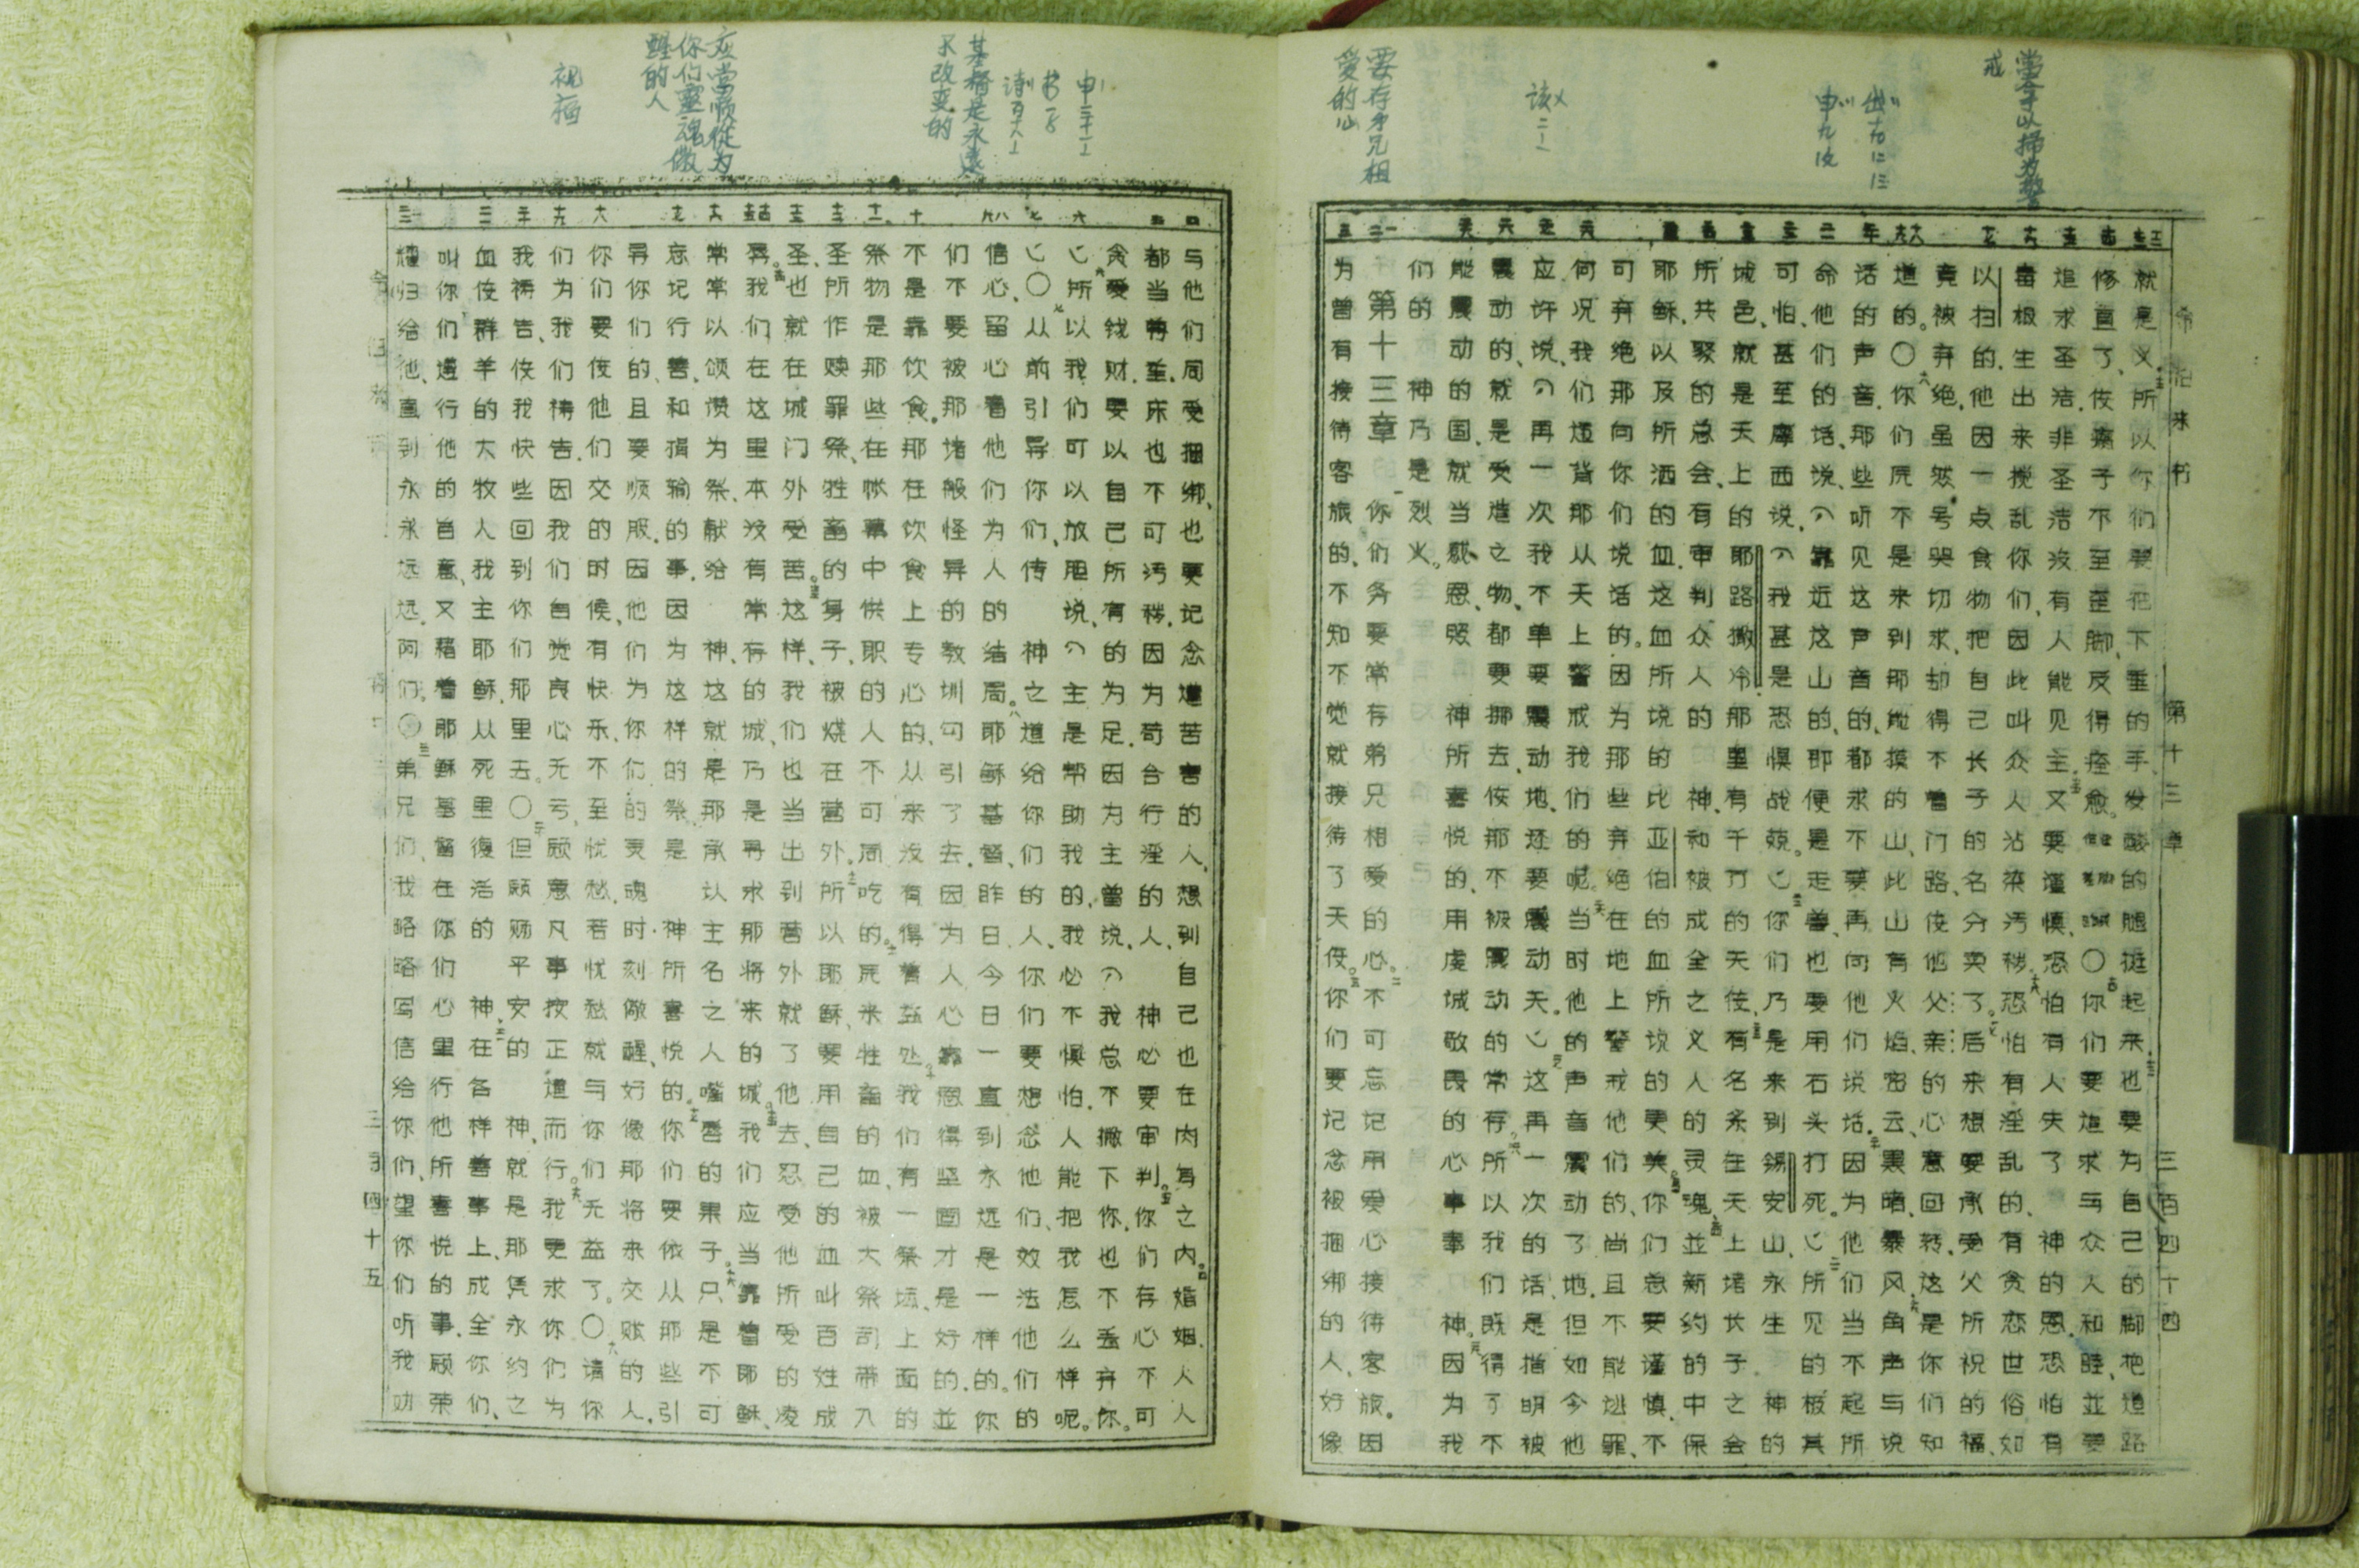 当今以扫为警
戒
出十九12 13
申九19
该二6
要存弟兄相
爱的心
希伯来书 第十三章 三百四十四
就是义所以你们要把下垂的手、发酸的腿挺起来、也要为自己的脚、把道路
修直了、使瘸子不至歪脚、反得痊愈。〇你们要追求与众人和睦、並要
追求圣洁、非圣洁没有人能见主、又要谨慎、恐怕有人失了神的恩、恐怕有
毒根生出来搅乱你们、因此叫众人沾染污秽、恐怕有淫乱的、有贪恋世俗如
以扫的、他因一点食物把自己长子的名分卖了。后来想要承受父所祝的福、
竟被弃绝、虽然号哭切求、却得不着门路、使他父亲的心意回转、这是你们知
道的。〇你们原不是来到那能摸的山、此山有火焰、密云、黑暗、暴风、角声与说
话的声音、那些听见这声音的、都求不要再向他们说话、因为他们当不起所
命他们的话、说、靠近这山的、即便是走兽、也要用石头打死。所见的极其
可怕、甚至摩西说、我甚是恐惧战兢。你们乃是来到锡安山、永生神的
城邑、就是天上的耶路撒冷那里有千万的天使、有名录在天上诸长子之会
所共聚的总会、有审判众人的神、和被成全之义人的灵魂、並新约的中保
耶稣、以及所洒的血、这血所说的比亚伯的血所说的更美。你们总要谨慎、不
可弃绝那向你们说话的。因为那些弃绝在地上警戒他们的、尚且不能逃罪、
何况我们违背那从天上警戒我们的呢。当时他的声音震动了地、但如今他
应许说、再一次我不单要震动地、还要震动天。这再一次的话、是指明被
震动的、就是受造之物、都要挪去、使那不被震动的常存。所以我们既得了不
能震动的国、就当感恩、照神所喜悦的、用虔诚敬畏的心事奉神。因为我
们的神乃是烈火。
第十三章 你们务要常存弟兄相爱的心。不可忘记用爱心接待客旅。因
为曾有接待客旅的、不知不觉就接待了天使。你们要记念被捆绑的人、好像
基督是永远
不改变的
应当顺从为
你们灵魂儆
醒的人
祝福
与他们同受捆绑、也要记念遭苦害的人、想到自己也在肉身之内。婚姻、人人
都当尊重、床也不可污秽、因为苟合行淫的人、神必要审判。你们存心不可
贪爱钱财、要以自己所有的为足、因为主曾说、我总不撇下你、也不丢弃你。
所以我们可以放胆说、主是帮助我的、我必不惧怕、人能把我怎么样呢。
〇从前引导你们、传神之道给你们的人、你们要想念他们、效法他们的
信心、留心看他们为人的结局。耶稣基督、昨日、今日一直到永远是一样的。你
们不要被那诸般怪异的教训勾引了去、因为人心靠恩得坚固才是好的、並
不是靠饮食。那在饮食上专心的、从来没有得着益处。我们有一祭坛、上面的
祭物是那些在帐幕中供职的人不可同吃的。原来牲畜的血、被大祭司带入
圣所作赎罪祭、牲畜的身子、被烧在营外。所以耶稣、要用自己的血叫百姓成
圣、也就在城门外受苦。这样、我们也当出到营外就了他去、忍受他所受的凌
辱。我们在这里本没有常存的城、乃是寻求那将来的城。我们应当靠着耶稣、
常常以颂赞为祭、献给神、这就是那承认主名之人嘴唇的果子。只是不可
忘记行善、和捐输的事、因为这样的祭、是神所喜悦的。你们要依从那些引
导你们的、且要顺服、因他们为你们的灵魂时刻儆醒、好像那将来交账的人、
你们要使他们交的时候、有快乐、不至忧愁若忧愁就与你们无益了。〇请你
们为我们祷告、因我们自觉良心无亏、愿意凡事按正道而行。我更求你们为
我祷告、使我快些回到你们那里去。〇但愿赐平安的神、就是那凭永约之
血使群羊的大牧人我主耶稣、从死里復活的神、在各样善事上、成全你们、
叫你们遵行他的旨意、又藉着耶稣基督在你们心里行他所喜悦的事、愿荣
耀归给他、直到永永远远、阿们。〇弟兄们、我略略写信给你们、望你们听我劝
三百四十五